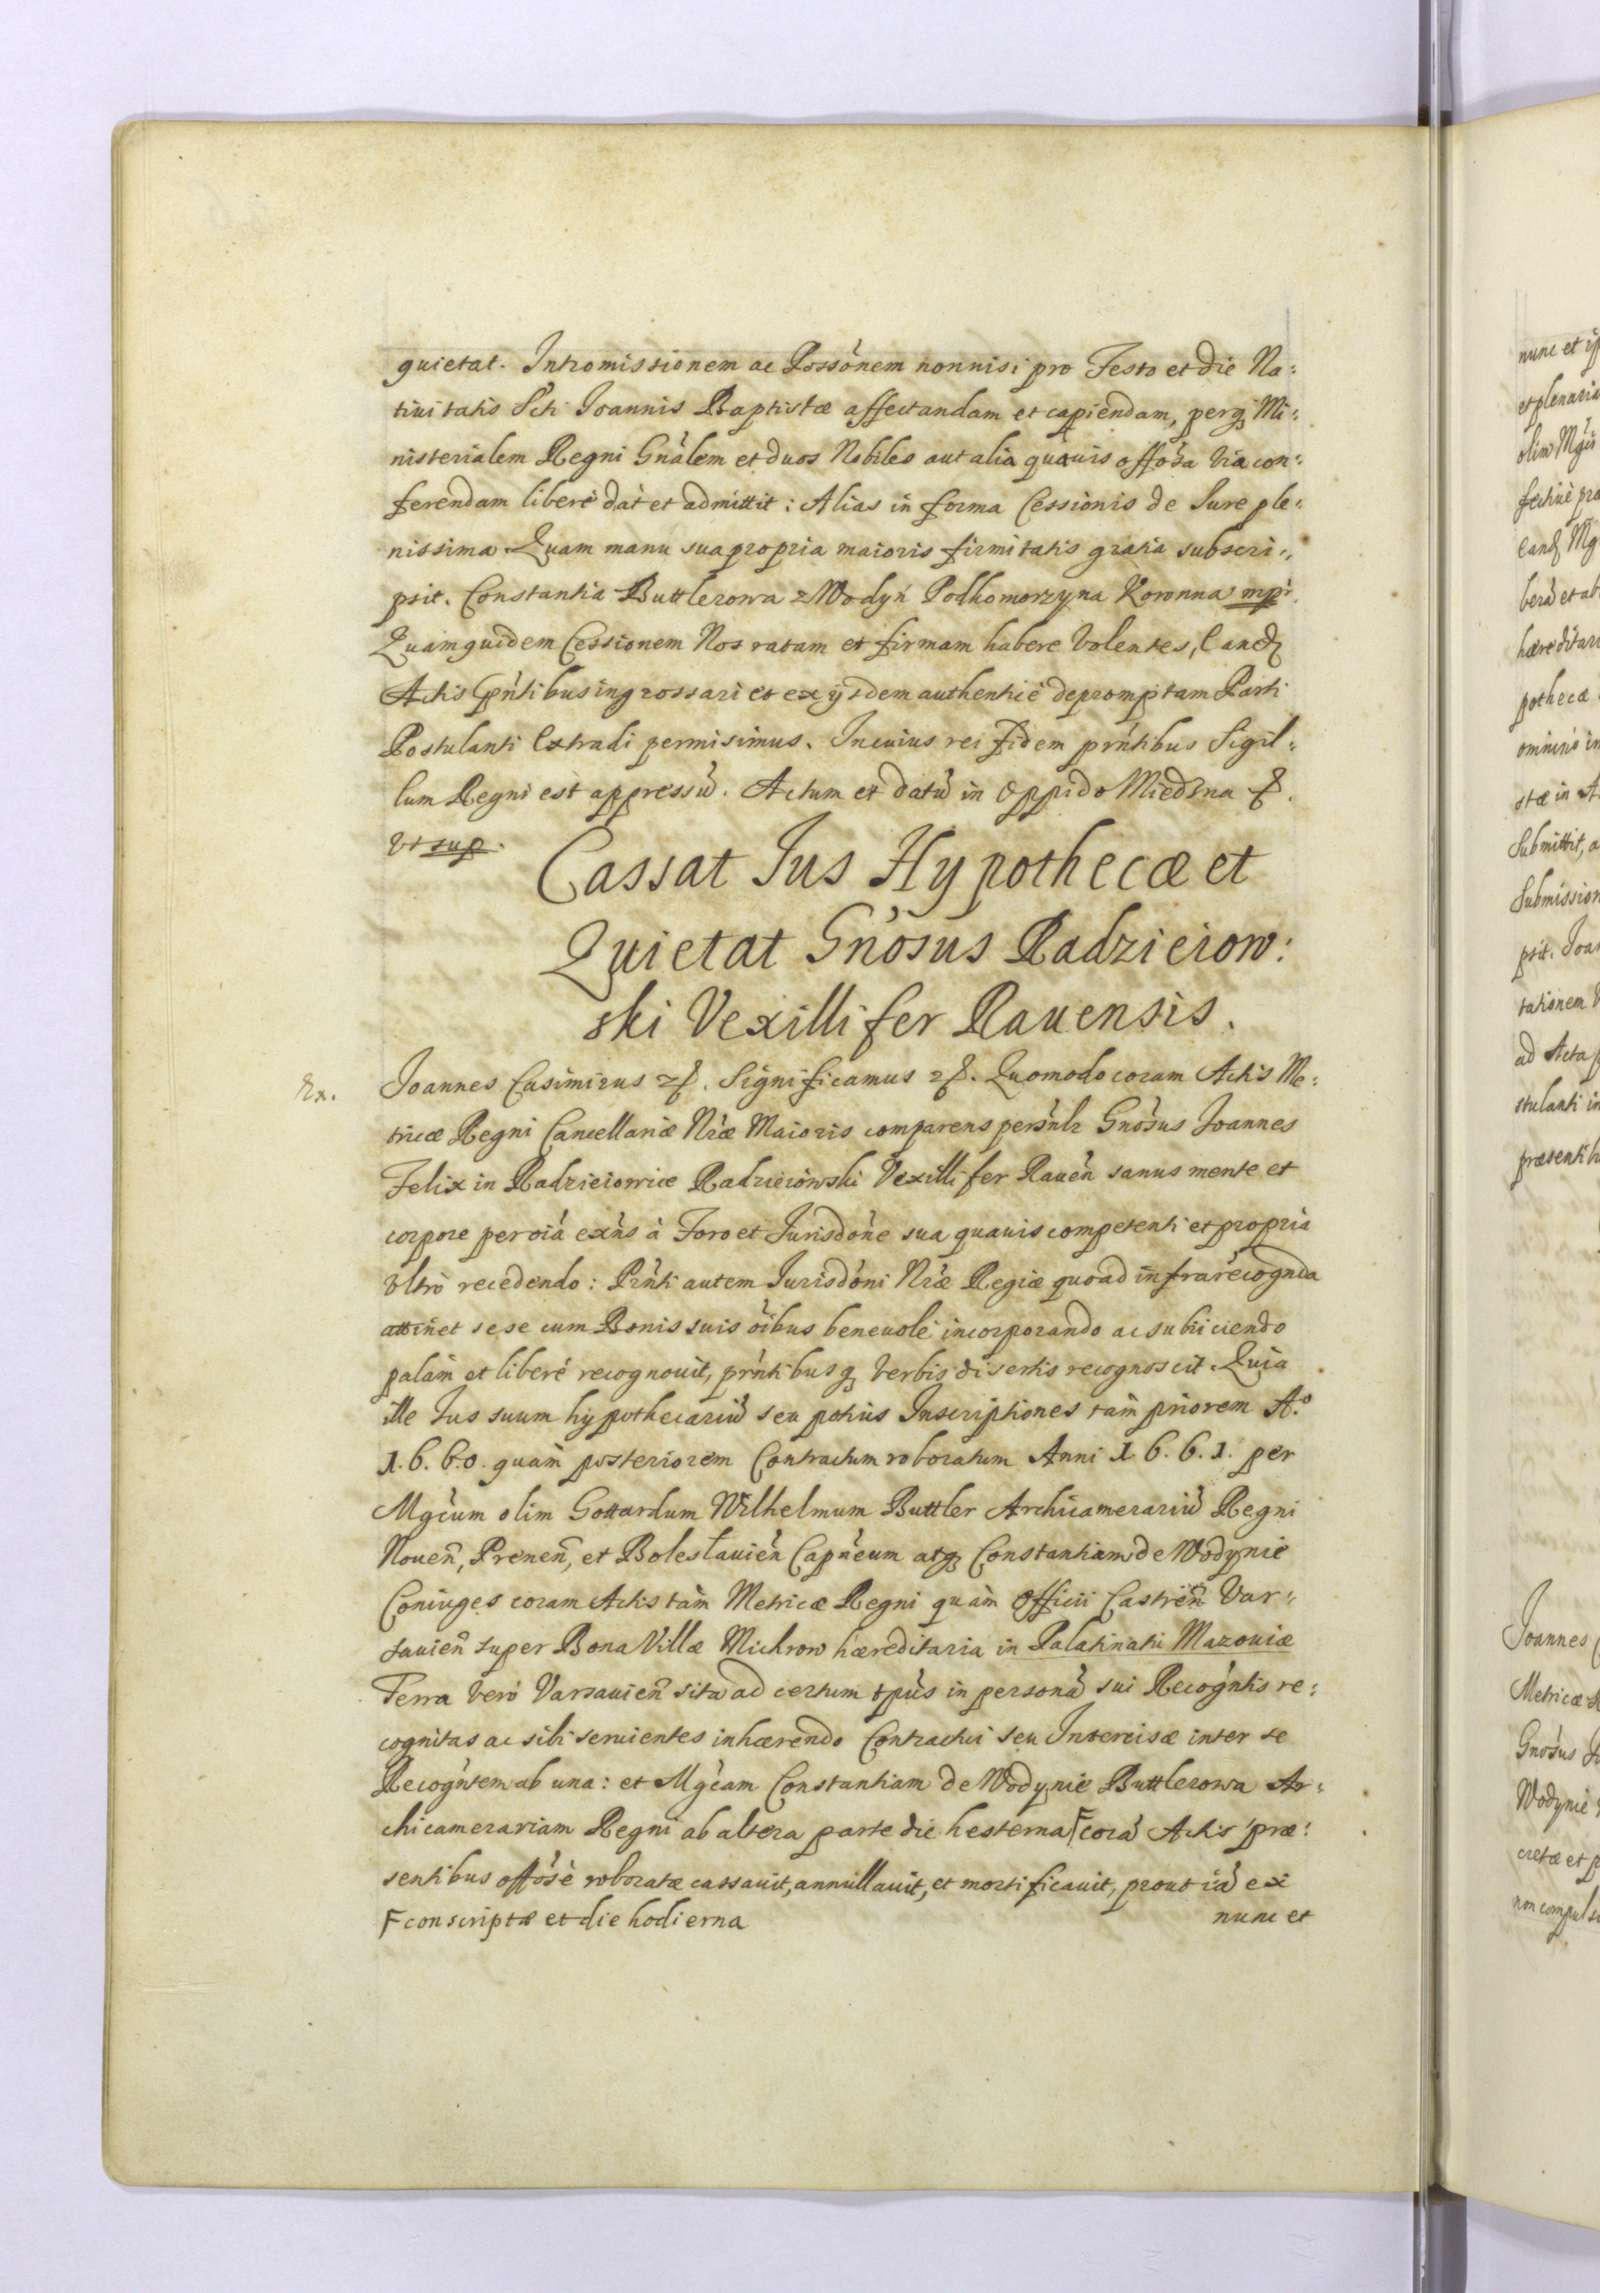 quietat. Intromissionem ac Possonem nonnisi pro Festo et die Na:
tiuitatis Scti Joannis Baptistæ affectandam et capiendam, perq Mi:
nisterialem Regni Gnalem et duos Nobiles aut alia quauis offosa via con:
ferendam liberè dat et admittit: Alias in forma Cessionis de Iure ple:
nissima Quam manu sua propria maioris firmitatis gratia subscri:
psit. Constantia Buttlerowa z Wodyń Podkomorzyna Koronna mp.
Quamquidem Cessionem Nos ratam et firmam habere volentes, Eand
Actis pntibus ingrossari et ex ijsdem authenticè depromptam Parti
Postulanti Extradi permisimus. In cuius rei fidem prntibus Sigil:
lum Regni est appressũ. Actum et datũ in Oppido Miedzna
vt sup.
Cassat Jus Hypothecæ et
Quietat Gnosus Radzieiow:
ski Vexillifer Rauensis.
Rx.
Joannes Casimirus Significamus Quomodo coram Actis Me:
tricæ Regni Cancellariæ Nræ Maioris comparens persnlr Gnosus Joannes
Felix in Radzieiowice Radzieiowski Vexillifer Rauen sanus mente et
corpore per oia exns à Foro et Jurisdone sua quauis competenti et propria
vltrò recedendo: Prnti autem Jurisdoni Nræ Regiæ quoad infrarecognda
attinet sese cum Bonis suis oibus beneuolè incorporando ac subiiciendo
palàm et liberè recognouit, prntibusq verbis disertis recognoscit Quia
ille Jus suum hypothecariũ seu potius Inscriptiones tàm priorem A.º
1.6.6.0. quàm posteriorem Contractum roboratum Anni 1 6. 6. 1. per
Mgcum olim Gottardum Wilhelmum Buttler Archicamerariũ Regni
Nouen, Prenen, et Bolesłauien Capneum atq Constantiam de Wodynie
Coniuges coram Actis tàm Metricæ Regni quàm Officii Castren Var:
sauien super Bona Villæ Michrow hæreditaria in Palatinatu Mazouiæ
Terra verò Varsauien sita ad certum tpus in personã sui Recogntis re:
cognitas ac sibi seruientes inhærendo Contractui seu Intercisæ inter se
Recogntem ab una: et Mgcam Constantiam de Wodynie Buttlerowa Ar:
chicamerariam Regni ab altera parte die hesterna F corã Actis præ:
sentibus offosè roboratæ cassauit, annullauit, et mortificauit, prout iã ex
F conscriptæ et die hodierna
nunc et